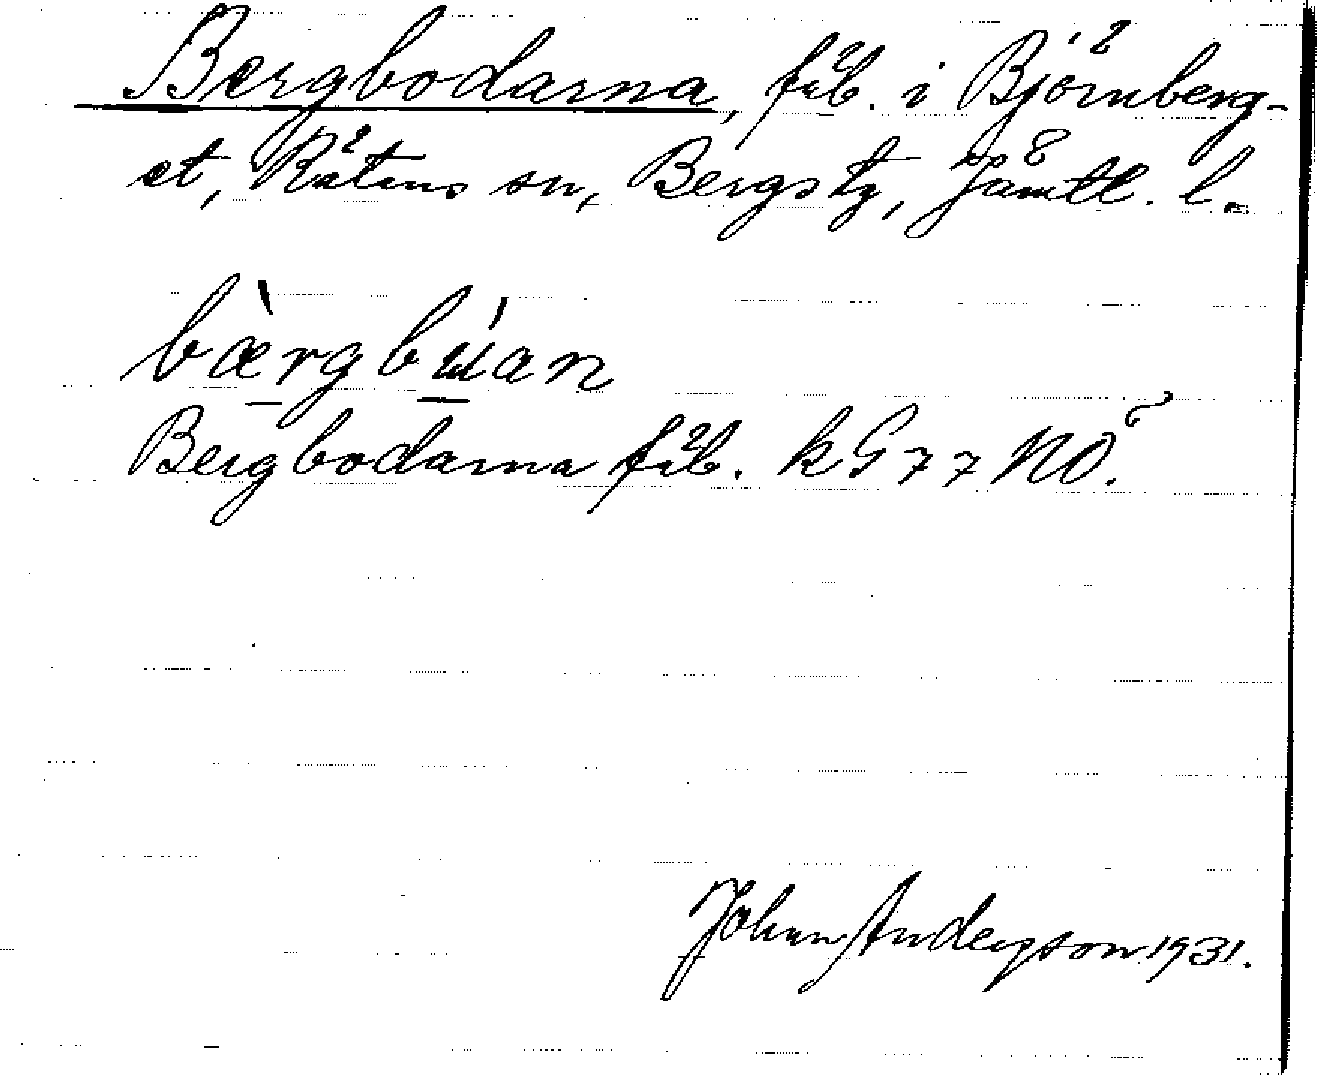 Bergbodarna, fäb. i Björnberg-
et, Rätans sn, Bergs tg, Jämtl. l.
bæ̀rgbúan
Bergbodarna fäb. k G77 NÖ.
Johan Anderson 1931.